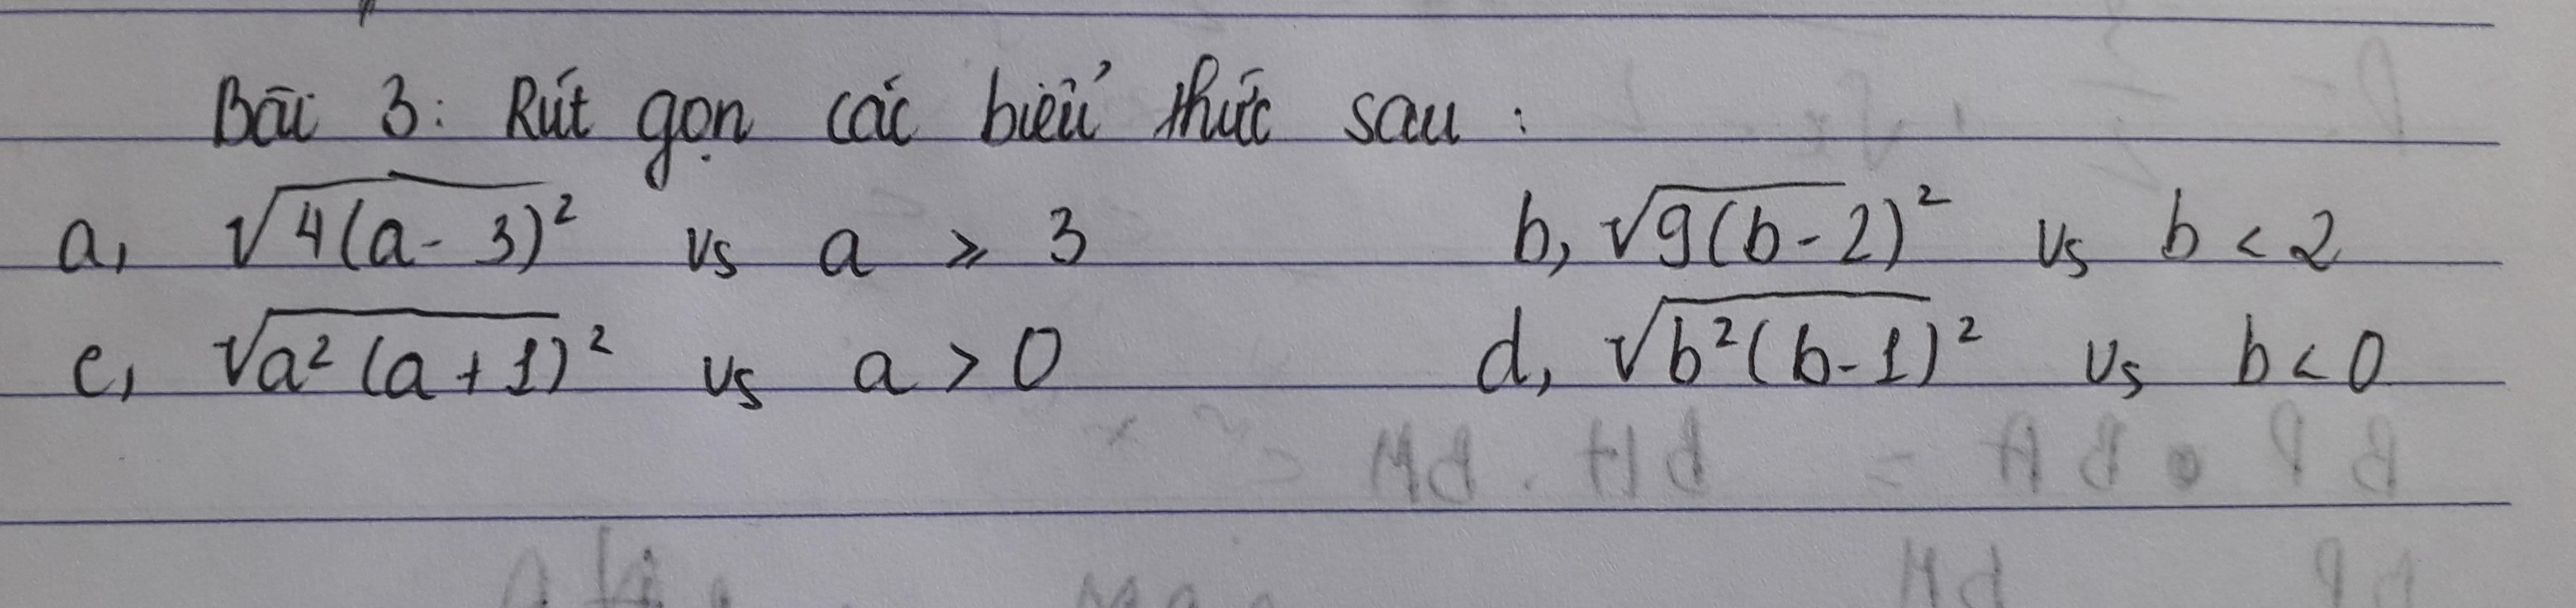 Bài 3: Rút gọn các biểu thức sau :
a, √4(a-3)² vs a ≥ 3 b, √9(b-2)² vs b < 2
c, √a²(a+1)² vs a > 0 d, √b²(b-1)² vs b < 0